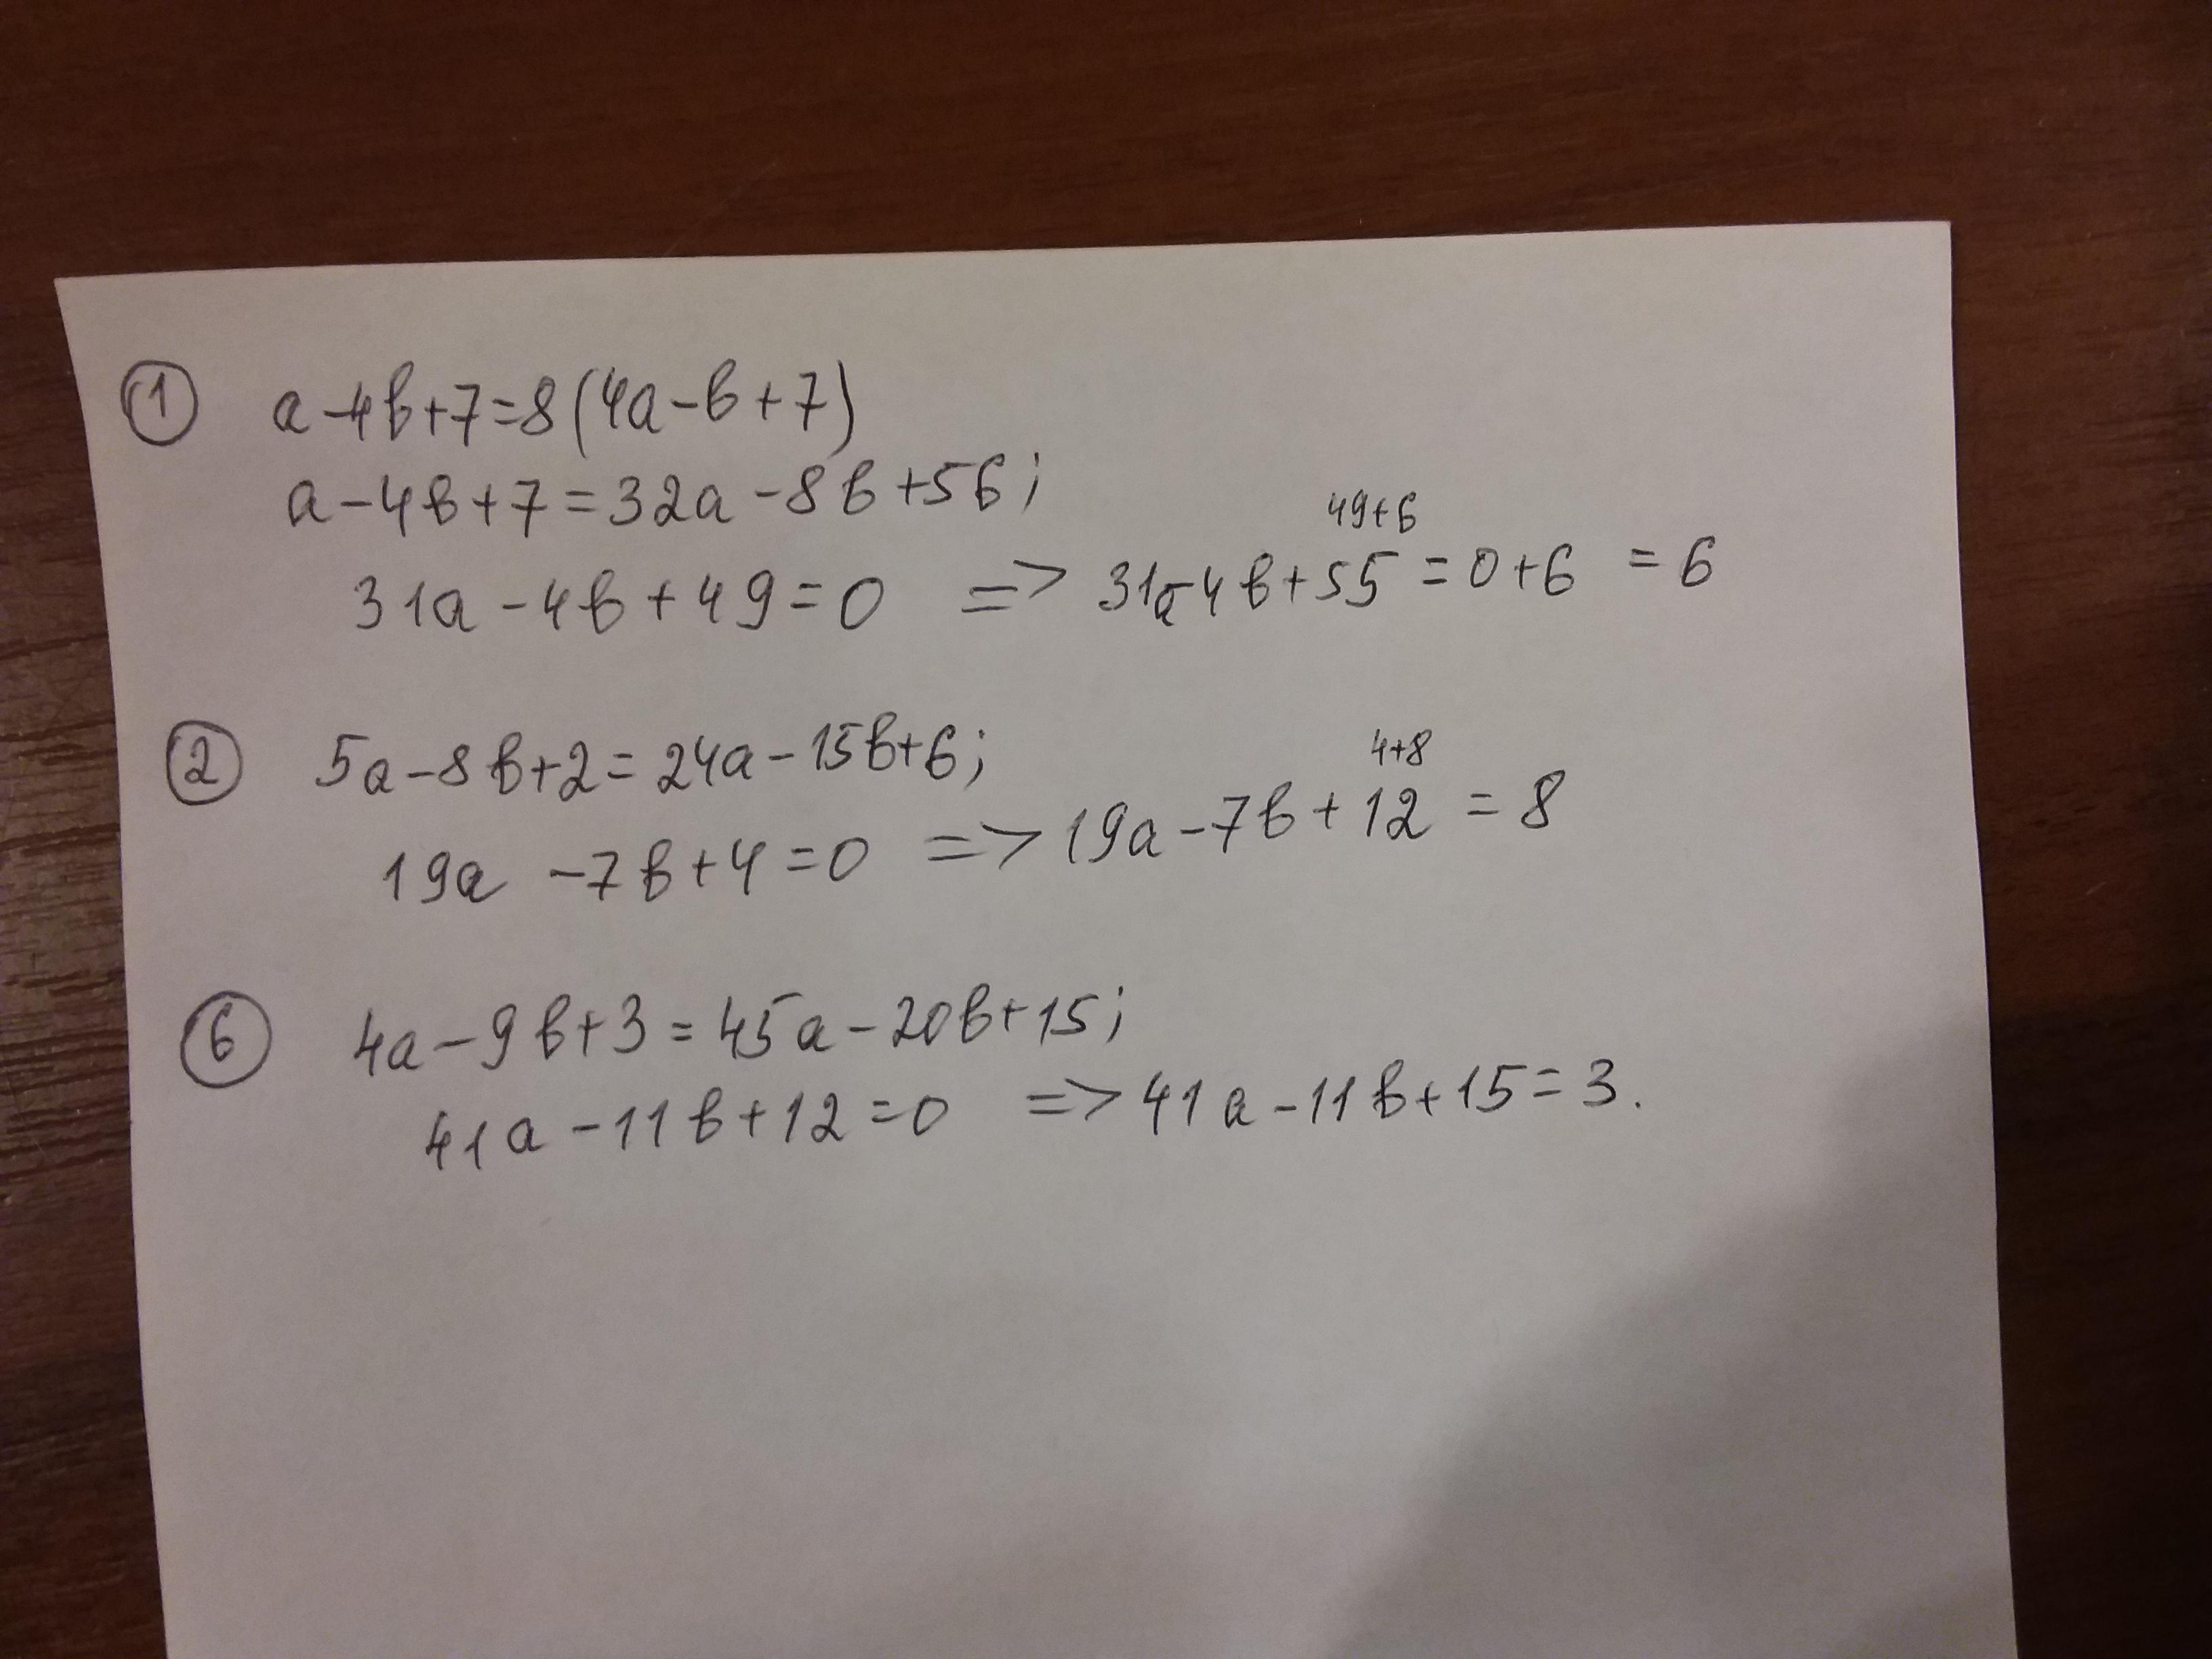 ① a-4b+7=8(4a-b+7)
a-4b+7=32a-8b+56;
49+6
31a-4b+49=0 => 31a-4b+55=0+6 =6
② 5a-8b+2=24a-15b+6;
4+8
19a-7b+4=0 => 19a-7b+12=8
⑥ 4a-9b+3=45a-20b+15;
41a-11b+12=0 => 41a-11b+15=3.